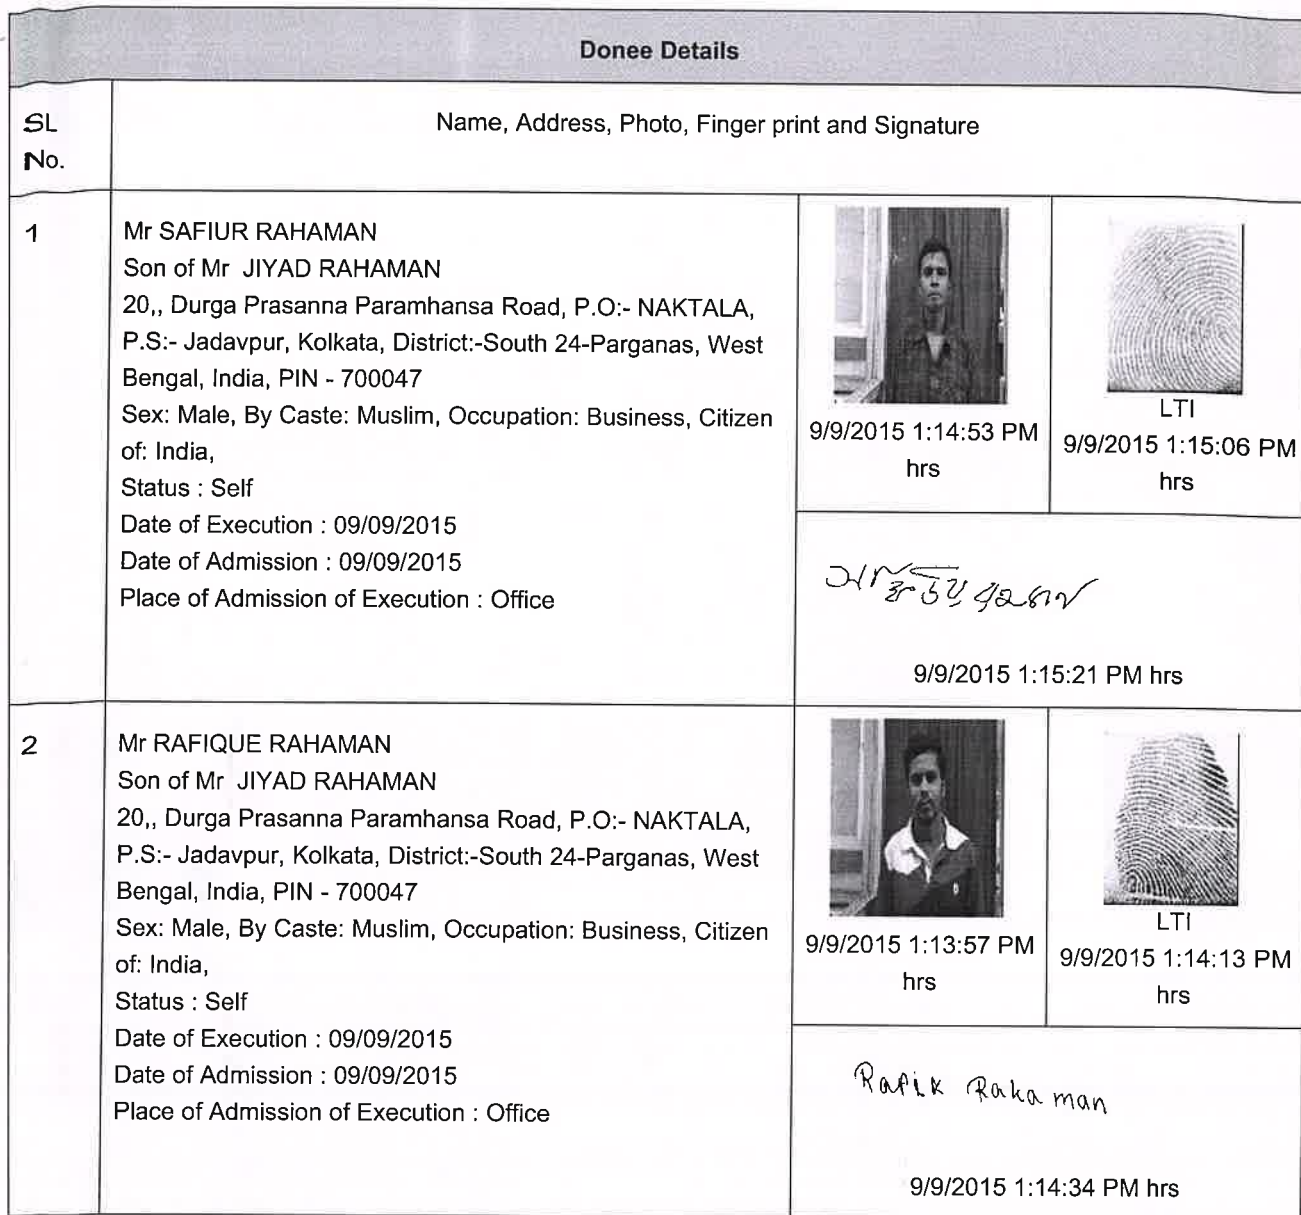 Donee Details
SL
No.
Name, Address, Photo, Finger print and Signature
1
Mr SAFIUR RAHAMAN
Son of Mr JIYAD RAHAMAN
20,, Durga Prasanna Paramhansa Road, P.O:- NAKTALA,
P.S:- Jadavpur, Kolkata, District:-South 24-Parganas, West
Bengal, India, PIN - 700047
Sex: Male, By Caste: Muslim, Occupation: Business, Citizen
of: India,
Status : Self
Date of Execution : 09/09/2015
Date of Admission : 09/09/2015
Place of Admission of Execution : Office
9/9/2015 1:14:53 PM
hrs
LTI
9/9/2015 1:15:06 PM
hrs
9/9/2015 1:15:21 PM hrs
2
Mr RAFIQUE RAHAMAN
Son of Mr JIYAD RAHAMAN
20,, Durga Prasanna Paramhansa Road, P.O:- NAKTALA,
P.S:- Jadavpur, Kolkata, District:-South 24-Parganas, West
Bengal, India, PIN - 700047
Sex: Male, By Caste: Muslim, Occupation: Business, Citizen
of: India,
Status : Self
Date of Execution : 09/09/2015
Date of Admission : 09/09/2015
Place of Admission of Execution : Office
9/9/2015 1:13:57 PM
hrs
LTI
9/9/2015 1:14:13 PM
hrs
Rafik Rahaman
9/9/2015 1:14:34 PM hrs